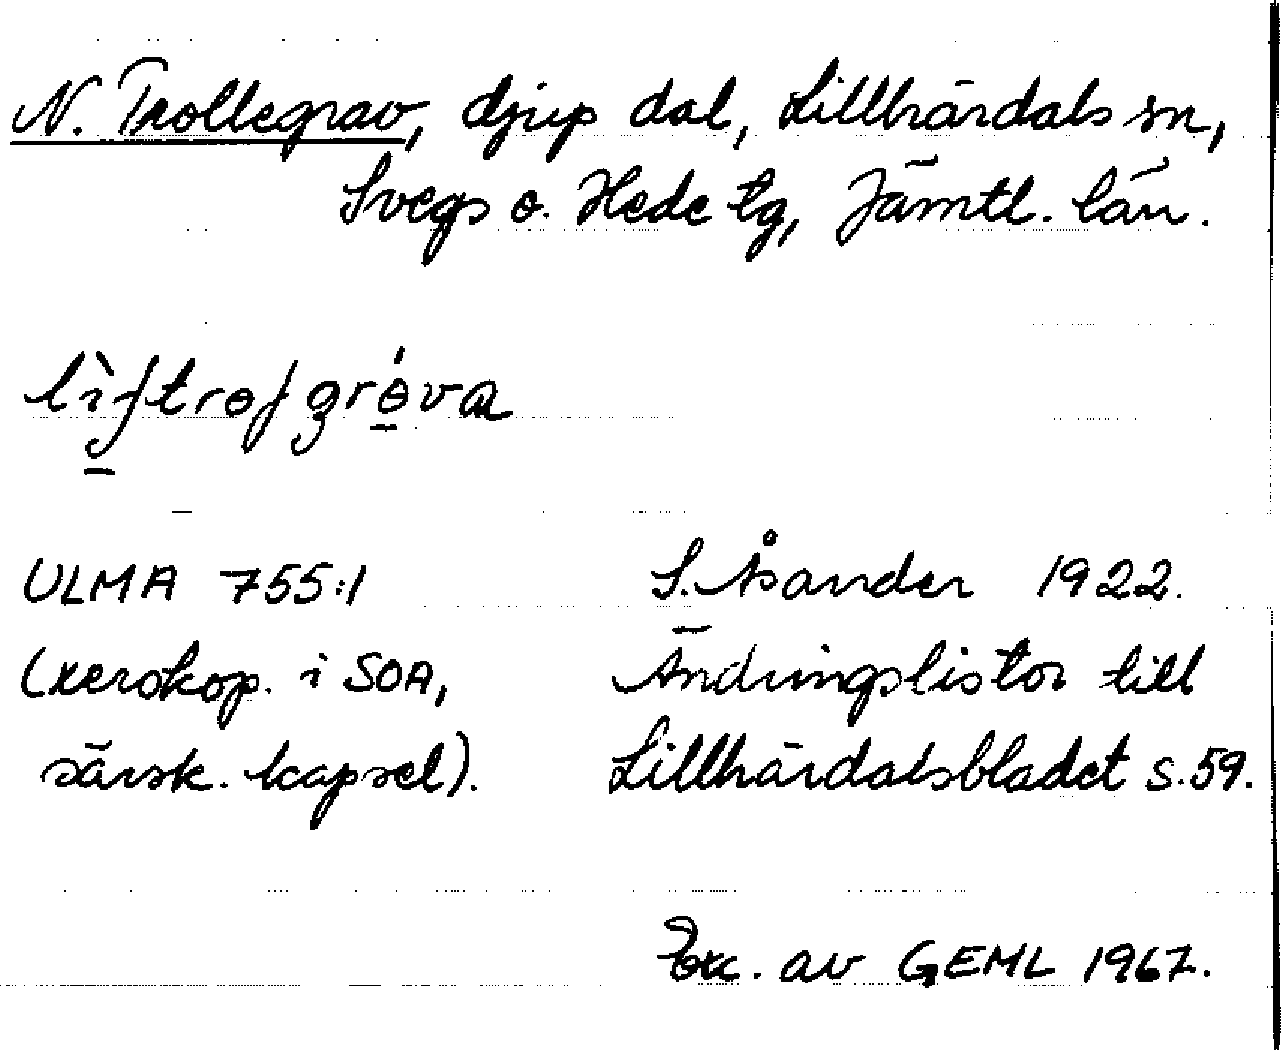 N. Trollegrav, djup dal, Lillhärdals sn,
Svegs o. Hede tg, Jämtl. län.
ULMA 755:1
S. Åsander 1922.
(xerokop. i SOA,
Ändringslistor till
särsk. kapsel).
Lillhärdalsbladet s. 59.
Exc. av GEML 1967.